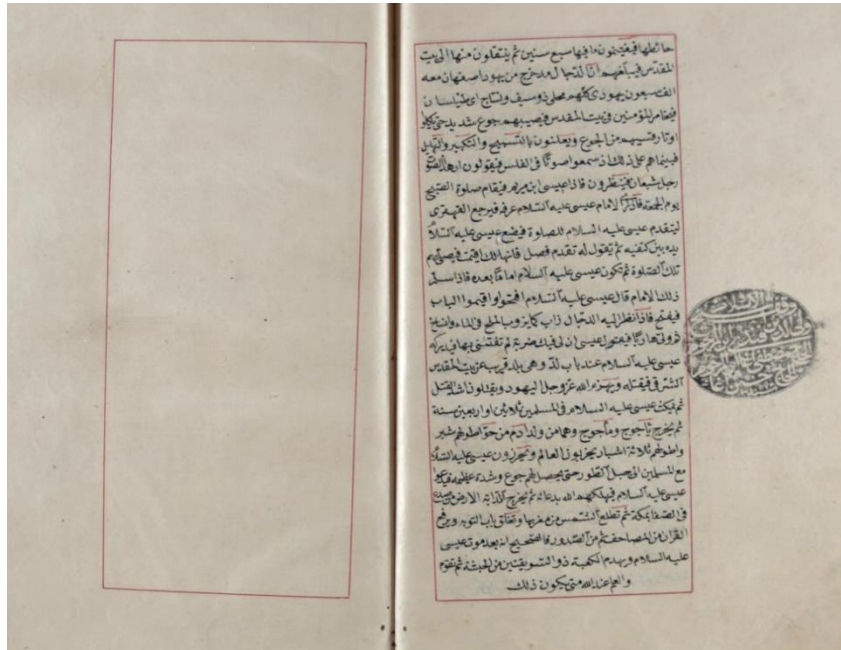 حائطها فيغنمون ما فيها سبع سنين ثم ينتقلون منها الى بيت
المقدس فيبلغهم ان الدجال قد خرج من يهود اصفهان معه
الف سبعون يهودى كلهم محلى ذو سيف وتاج اى طيلسان
المؤمنين فى بيت المقدس فيصيبهم جوع شديد حتى ياكلوا
اوتار قسيهم من الجوع ويعلنون بالتسبيح والتكبير والتهليل
فبينما هم على ذلك اذ سمعوا صوتا فى الغلس فيقولون ان هذا الصوت
رجل شبعان فينظرون فاذا عيسى ابن مريم فيقام صلوة الصبح
يوم الجمعة الامام عيسى عليه السلام عرفه فيرجع القهقرى
ليتقدم عيسى عليه السلام للصلوة فيضع عيسى عليه السلام
يده بين كتفيه ثم يقول له تقدم فصل فانها لك اقيمت فيصلى بهم
تلك الصلوة ثم تكون عيسى عليه السلام اماما بعده فاذا سلم
ذلك الامام قال عيسى عليه السلام افتحوا الباب
فيفتح فاذا نظر اليه الدجال ذاب كما يذوب الملح فى الماء
هاربا فيقول عيسى ان لى فيك ضربة لم تفتنى بها فيدركه
عيسى عليه السلام عند باب لد وهى بلد قريب من بيت المقدس
الشرقى فيقتله ويهزم الله عز وجل اليهود ويقتلون اشد القتل
ثم يمكث عيسى عليه السلام فى المسلمين ثلاثين او اربعين سنة
ثم يخرج يأجوج ومأجوج وهما من ولد ادم من حوا طولهم شبر
واطولهم ثلاثة اشبار يخربون العالم ويحرزون عيسى عليه السلام
مع المسلمين الى جبل الطور حتى يحصل لهم جوع وشدة عظيمة فيدعوا
عيسى عليه السلام فيهلكهم الله بدعائه ثم يخرج دابة الارض من
فى الصفا بمكة ثم تطلع الشمس من مغربها وتغلق باب التوبه ويرفع
القرآن من المصاحف ثم من الصدور فالصحيح انه بعد موت عيسى
عليه السلام ويهدم الكعبة ذو السويقتين من الحبشة ثم تقوم
والعلم عند الله متى يكون ذلك